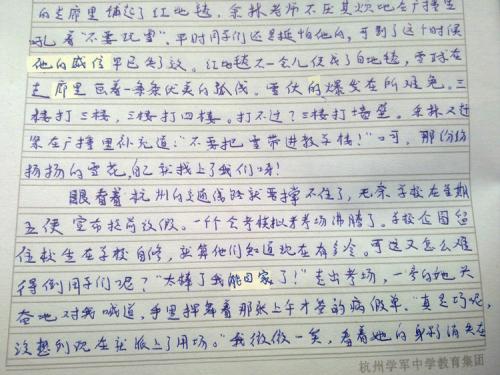 的走廊里铺起了红地毯,朱林老师不厌其烦地在广播里
吼着“不要玩雪”。平时同学们还是挺怕他的,可到了这个时候
他的威信早已失了效。红地毯不一会儿便成了白地毯,雪球在
走廊里画着一条条优美的弧线。雪仗的爆发在所难免。三
楼打三楼,三楼打四楼。打不过?三楼打墙壁。朱林又赶
紧在广播里补充道:“不要把雪带进教学楼!”可,那纷纷
扬扬的雪花,自己就找上了我们呀!
眼看着杭州的交通线路就要撑不住了,无奈学校在星期
五便宣布提前放假。一个个会考模拟考考场沸腾了。学校企图留
住校生在学校自修,就算他们知道现在有多冷。可这又怎么难
得倒同学们呢?“太棒了我能回家了!”走出考场,一号的她兴
奋地对我喊道,手里挥舞着那张上午才签的病假单。“真是巧呢,
没想到现在就派上了用场。”我微微一笑,看着她的身影消失在
杭州学军中学教育集团